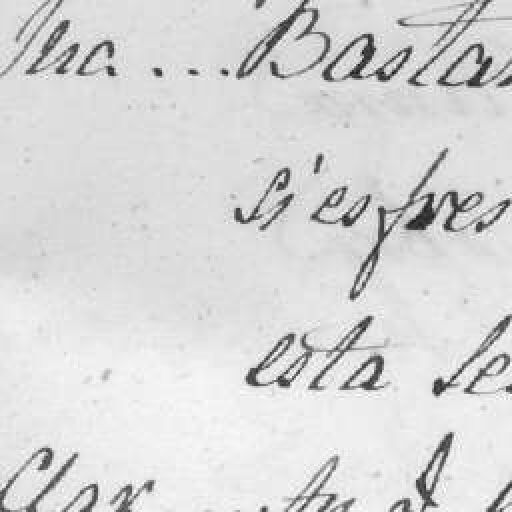 Ina....Bastan
si es pres
esta Se
Clar